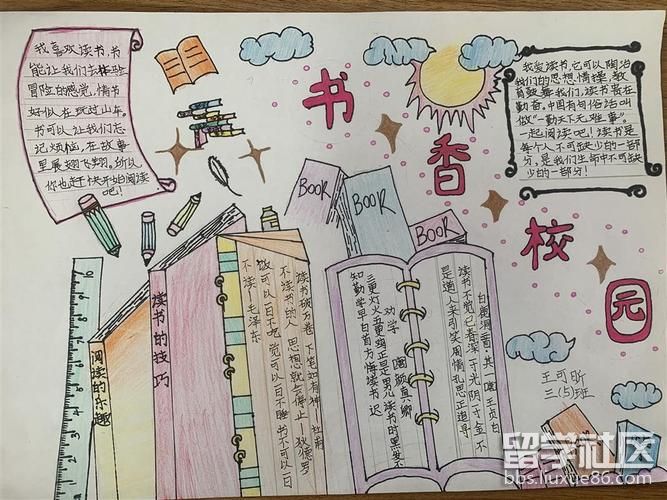 我喜欢读书,书
能让我们去体验
冒险的感觉,情节
好似在玩过山车。
书可以让我们忘
记烦恼,在故事
里展翅飞翔。所以
你也赶快开始阅读
吧!
书香校园
我爱读书,它可以陶冶
我们的思想情操,教
育鼓舞我们,读书贵在
勤奋。中国有句俗话叫
做“一勤天下无难事”。
一起阅读吧!读书是
每个人不可缺少的一部
分,是我们生命中不可缺
少的一部分!
BOOK
BOOK
BOOK
阅读的乐趣
读书的技巧
读书破万卷 下笔如有神—杜甫
不读书的人 思想就会停止—狄德罗
饭可以一日不吃 觉可以一日不睡 书不可以一日
不读—毛泽东
劝学 颜真卿
三更灯火五更鸡 正是男儿读书时 黑发不
知勤学早 白首方悔读书迟
白鹿洞 其一 唐 王贞白
读书不觉已春深 一寸光阴一寸金 不
是道人来引笑 周情孔思正追寻
王可昕
三(5)班
留学社区
bbs.liuxue86.com